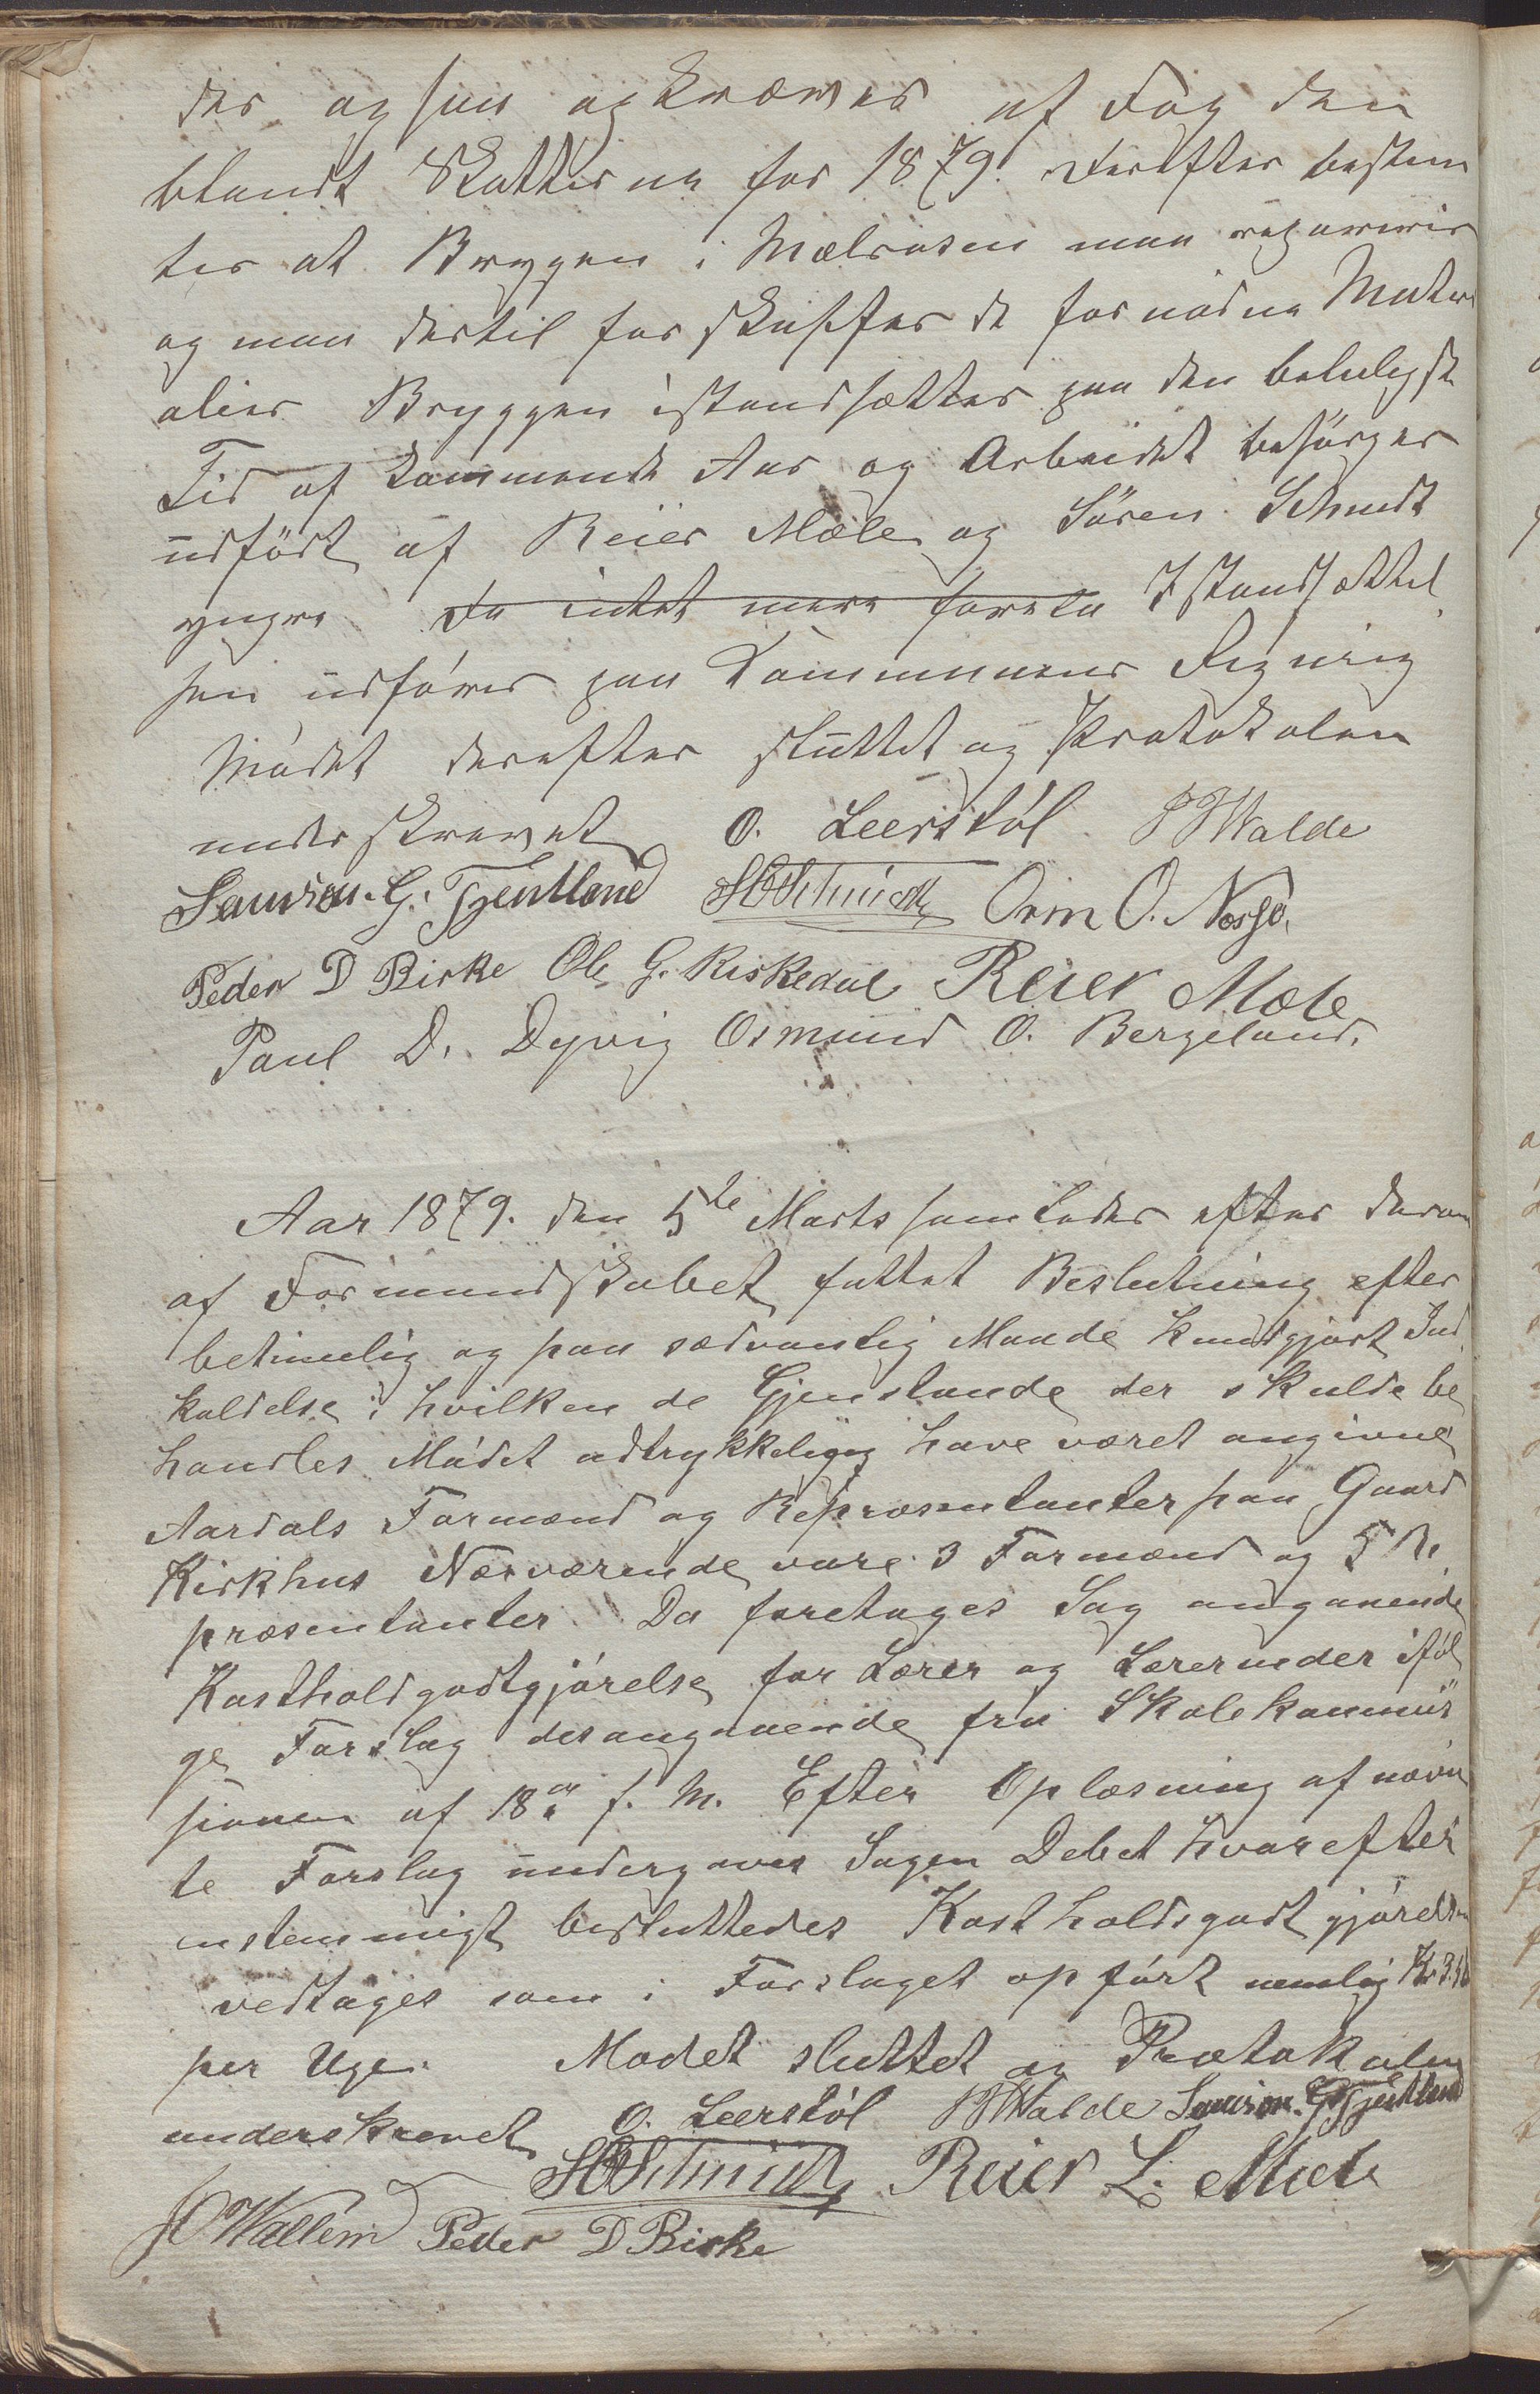 des og saa opkræves af Fog den
blandt Skatterne for 1879. Derefter bestem
tes at Bryggen i Mælsosen maa repareres
og maa dertil forskaffes de fornødne Materi
alier Bryggen istandsættes paa den beleiligste
Tid af kommende Aar og Arbeidet besørges
udført af Reier Mæle og Sören Schmidt
yngre Da intet mere foreta Istandsættel
sen udföres paa Kommunens Regning
Mödet derefter sluttet og Protokolen
underskrevet O. Leerstöl PPWalde
Samson. G. Tjentland SBSchmidt Orm O. Nessø.
Peder D Birke Ole G. Riskedal Reier Mæle
Paul D. Dyvig Osmund O. Bergeland.
Aar 1879. den 5te Marts samledes efter derom
af Formandskabet fattet Beslutning efter
betimelig og paa sædvanlig Maade kundgjort Ind
kaldelse i hvilken de Gjenstande der skulde be
handles Mödet udtrykkeligg have været angivne
Aardals Formænd og Repræsentanter paa Gaard
Kirkhus Nærværende vare 3 Formænd og 5 Re
præsentanter. Da foretages Sag angaaende
Kostholdgodtgjörelse for Lærer og Lærerinder iföl
ge Forslag desangaaende fra Skolekommis
sionen af 18de f. M. Efter Oplæsning af nævn
te Forslag undergaves Sagen Debat hvorefter
enstemmigt besluttedes Kostholdsgodtgjörelsen
vedtages som i Forslaget opfört nemlig Kr 3.50
per Uge. Mödet sluttet og Protokolen
underskrevet O. Leerstöl PPWalde Samson. G Tjentland
SBSchmidt Reier L. Mæle
JCWallem Peder D Birke